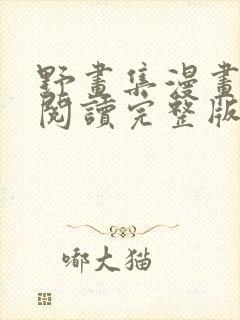 野畫集漫畫
閱讀完整版
嘟大猫